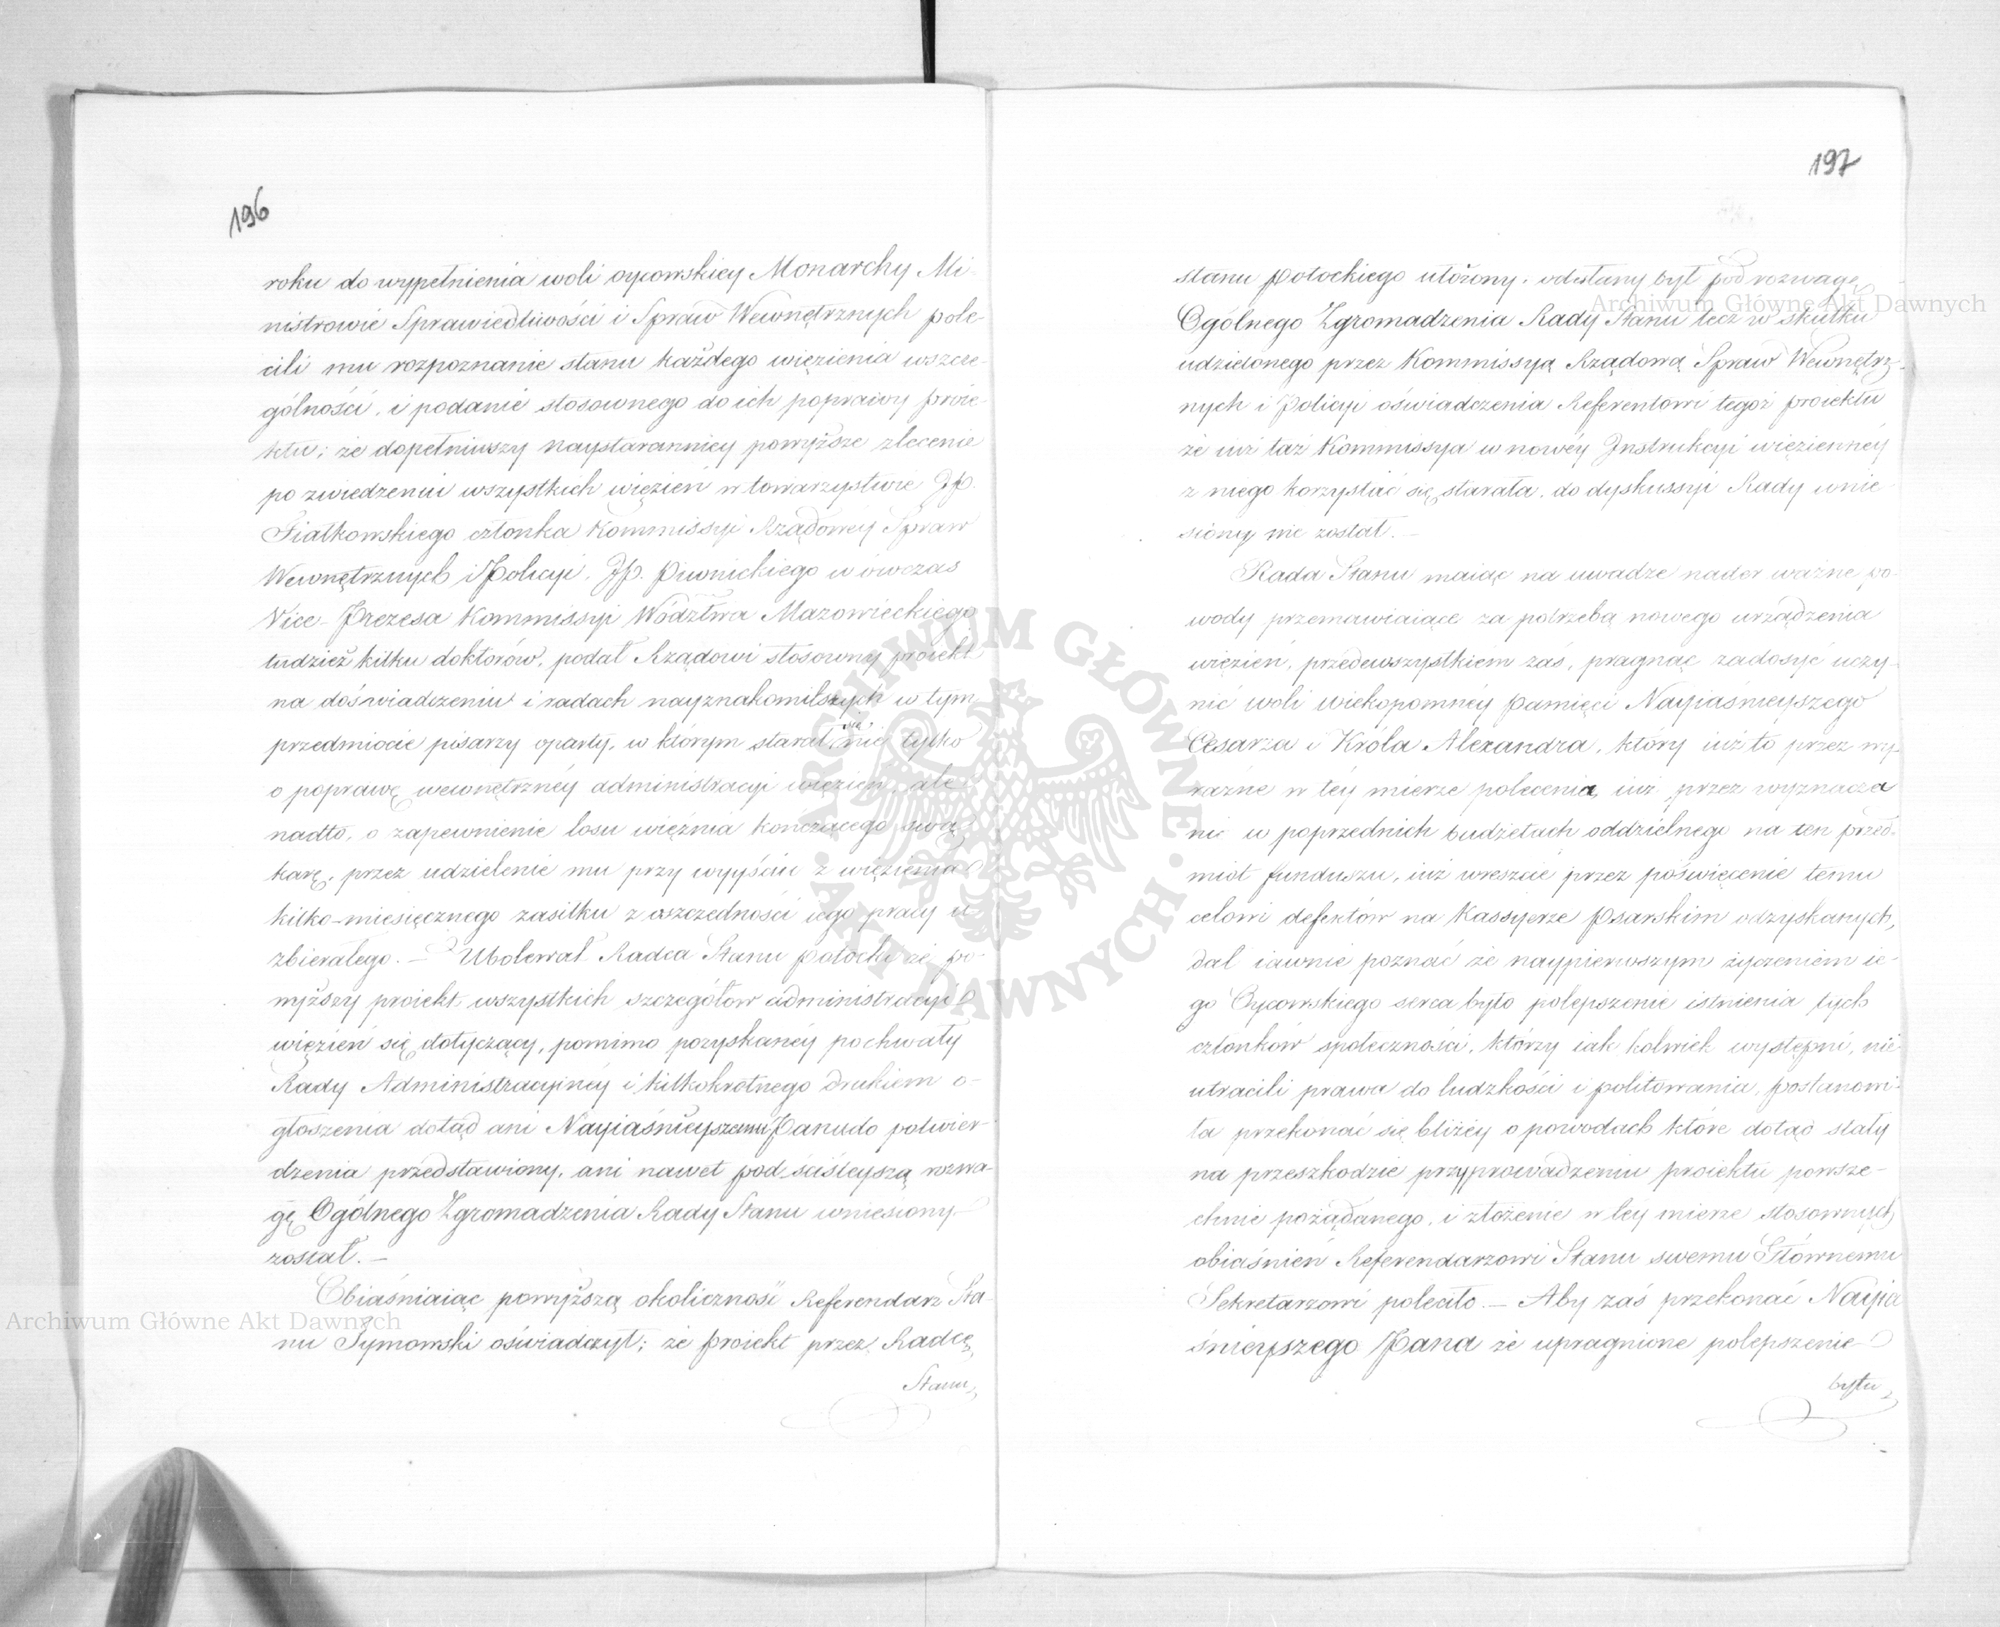 196
roku do wypełnienia woli oycowskiey Monarchy Mi-
nistrowie Sprawiedliwości i Spraw Wewnętrznych pole-
cili mu rozpoznanie stanu każdego więzienia wszcze-
gólności, i podanie stosownego do ich poprawy proie-
ktu; że dopełniwszy naystaranniey pomyższe zlecenie
po zwiedzeniu wszystkich więzień w towarzystwie JP.
Fiałkowskiego członka Kommissyi Rządowéy Spraw
Wewnętrznych i Policyi, JP. Piwnickiego w ówczas
Vice-Prezesa Kommissyi Wództwa Mazowieckiego
tudzież kilku doktorów, podał Rządowi stosowny proiekt
na doświadczeniu i radach nayznakomitszych w tym
przedmiocie pisarzy oparty, w którym starał się, nie tylko
o poprawę wewnętrznéy administracyi więzień, ale
nadto, o zapewnienie losu więźnia kończącego swą
karę, przez udzielenie mu przy wyyściu z więzienia
kilko-miesięcznego zasiłku z oszczędności iego pracy u-
zbierałego. — Ubolewał Radca Stanu Potocki że po-
myższy proiekt wszystkich szczegółow administracyi
więzień się dotyczący, pomimo pozyskanéy pochwały
Rady Administracyinéy i kilkokrotnego drukiem o-
głoszenia dotąd ani Nayiaśnieyszemu Panu do potwier-
dzenia przedstawiony, ani nawet pod ściśleyszą rozwa-
gę Ogólnego Zgromadzenia Rady Stanu wniesiony
został. —
Obiaśniaiąc pomyższą okoliczność Referendarz Sta-
nu Tymowski oświadczył; że proiekt przez Radcę
Stanu
197
stanu Potockiego ułożony, odesłany był pod rozwagę
Ogólnego Zgromadzenia Rady Stanu lecz w skutku
udzielonego przez Kommissyą Rządową Spraw Wewnętrz-
nych i Policyi oświadczenia Referentowi tegoż proiektu
że iuż taż Kommissya w nowéy Instrukcyi więziennéy
z niego korzystać się starała, do dyskussyi Rady wnie-
siony nie został. —
Rada Stanu maiąc na uwadze nader ważne po-
wody przemawiaiące za potrzebą nowego urządzenia
więzień, przedewszystkiem zaś, pragnąc zadosyć uczy-
nić woli wiekopomnéy pamięci Nayiaśnieyszego
Cesarza i Króla Alexandra, który iuż to przez wy-
raźne w téy mierze polecenia, iuż przez wyznacze-
nie w poprzednich budżetach oddzielnego na ten przed-
miot funduszu, iuż wreszcie przez poświęcenie temu
celowi defektów na Kassyerze Psarskim odzyskanych,
dał iawnie poznać że naypierwszym życzeniem ie-
go Oycowskiego serca było polepszenie istnienia tych
członków społeczności, którzy iak kolwiek występni, nie
utracili prawa do ludzkości i politowania, postanowi-
ła przekonać się bliżéy o powodach które dotąd stały
na przeszkodzie przyprowadzeniu proiektu powsze-
chnie pożądanego, i złożenie w téy mierze stosownych
obiaśnień Referendarzowi Stanu swemu Głównemu
Sekretarzowi poleciło. — Aby zaś przekonać Nayia-
śnieyszego Pana że upragnione polepszenie
bytu
Archiwum Główne Akt Dawnych
Archiwum Główne Akt Dawnych
ARCHIWUM GŁÓWNE AKT DAWNYCH